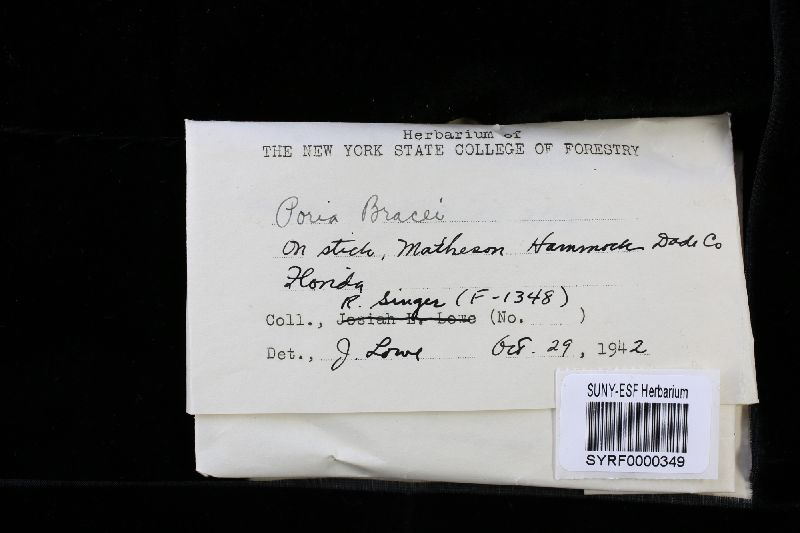 Herbarium of
THE NEW YORK STATE COLLEGE OF FORESTRY
Poria Bracei
On stick, Matheson Hammock Dade Co
Florida
R. Singer (F-1348)
Coll., Josiah L. Lowe (No. )
Det., J. Lowe Oct. 29, 1942
SUNY-ESF Herbarium
SYRF0000349